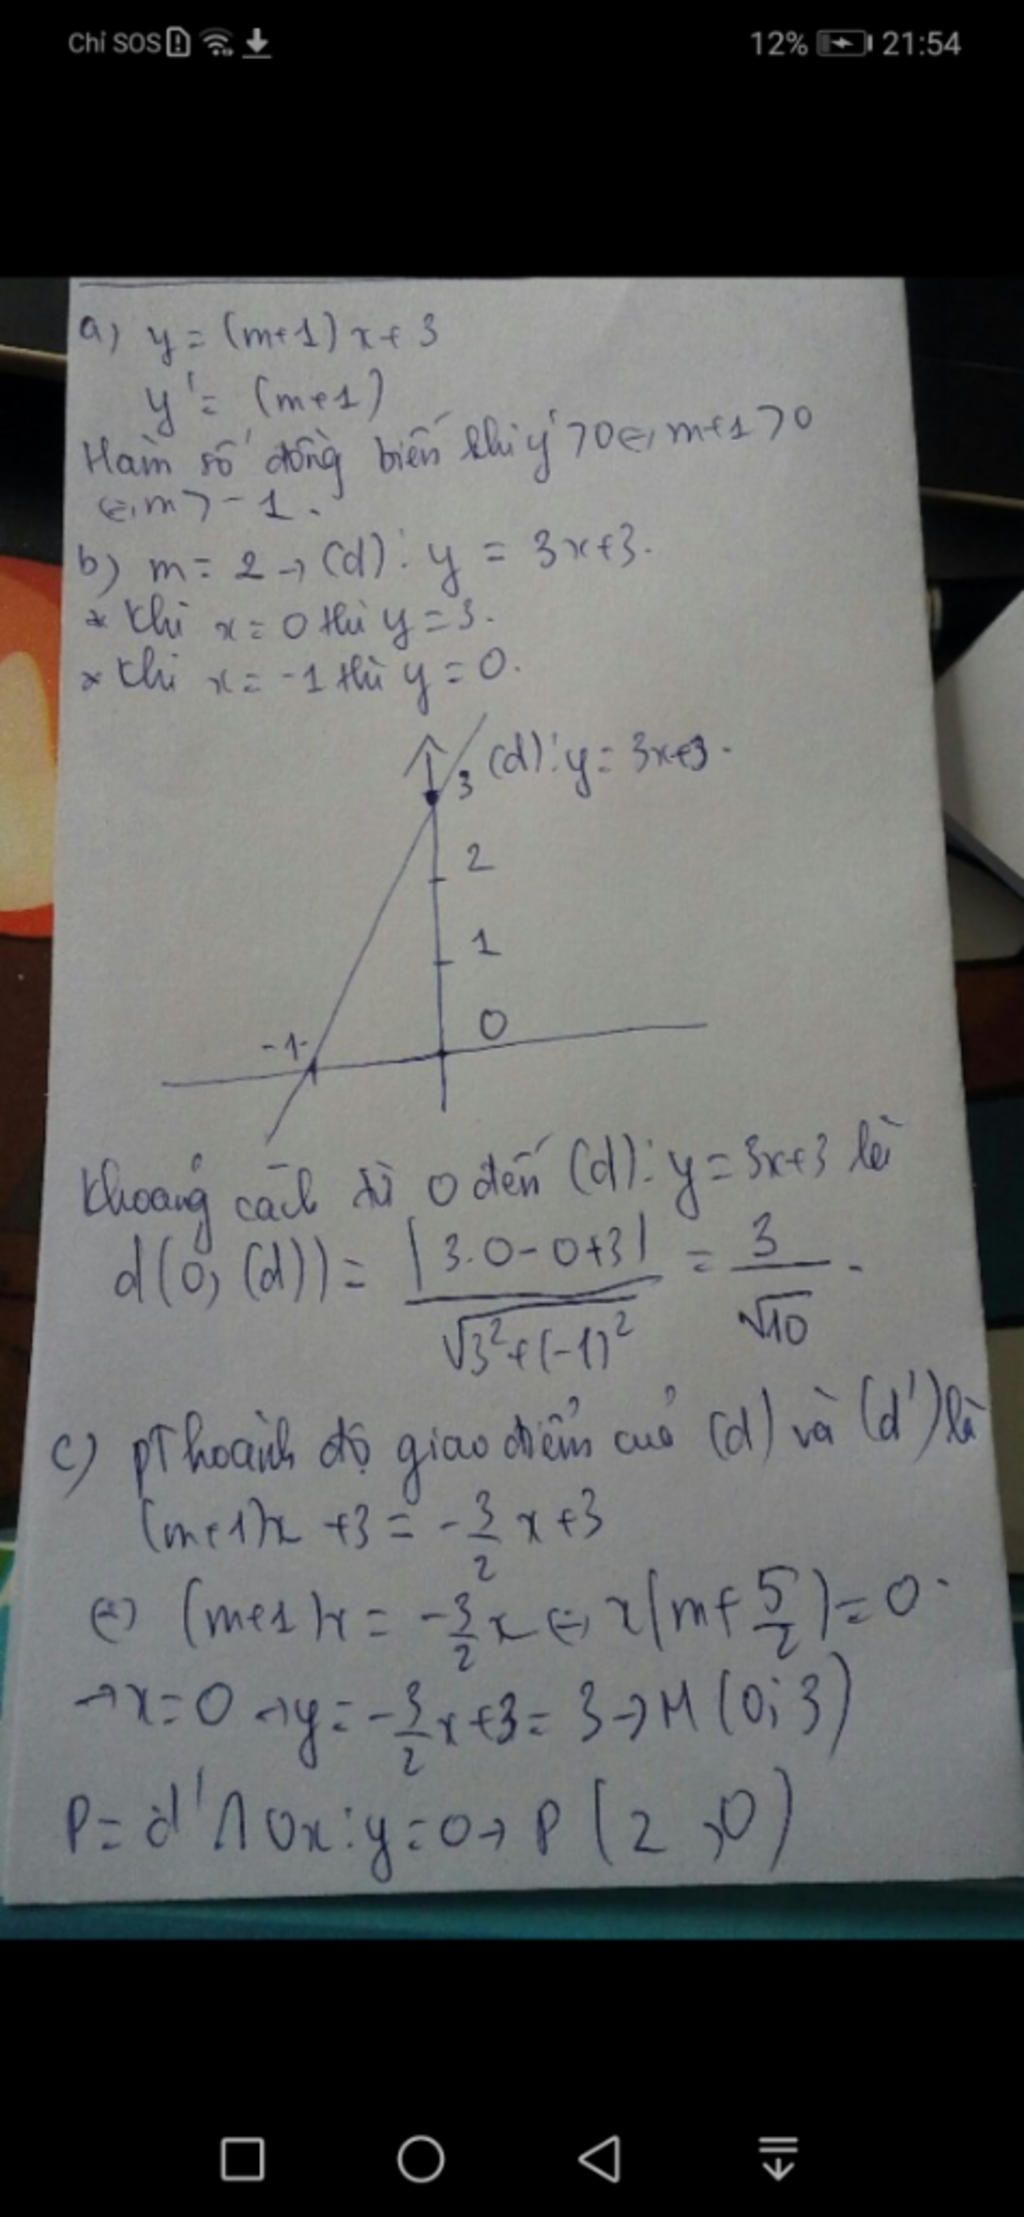 Chỉ SOS
12% 21:54
a) y = (m+1)x+3
y' = (m+1)
Hàm số đồng biến khi y' > 0 ⇔ m+1 > 0
⇔ m > -1.
b) m = 2 → (d): y = 3x+3.
* Khi x = 0 thì y = 3.
* Khi x = -1 thì y = 0.
3 (d): y = 3x+3.
2
1
0
-1
Khoảng cách từ O đến (d): y = 3x+3 là
d(O, (d)) = |3.0-0+3| / √3²+(-1)² = 3/√10.
c) pT hoành độ giao điểm của (d) và (d') là
(m+1)x + 3 = -3/2 x + 3
⇔ (m+1)x = -3/2 x ⇔ x(m+5/2) = 0.
→ x = 0 → y = -3/2 x + 3 = 3 → M(0; 3)
P = d' ∩ Ox: y = 0 → P(2, 0)